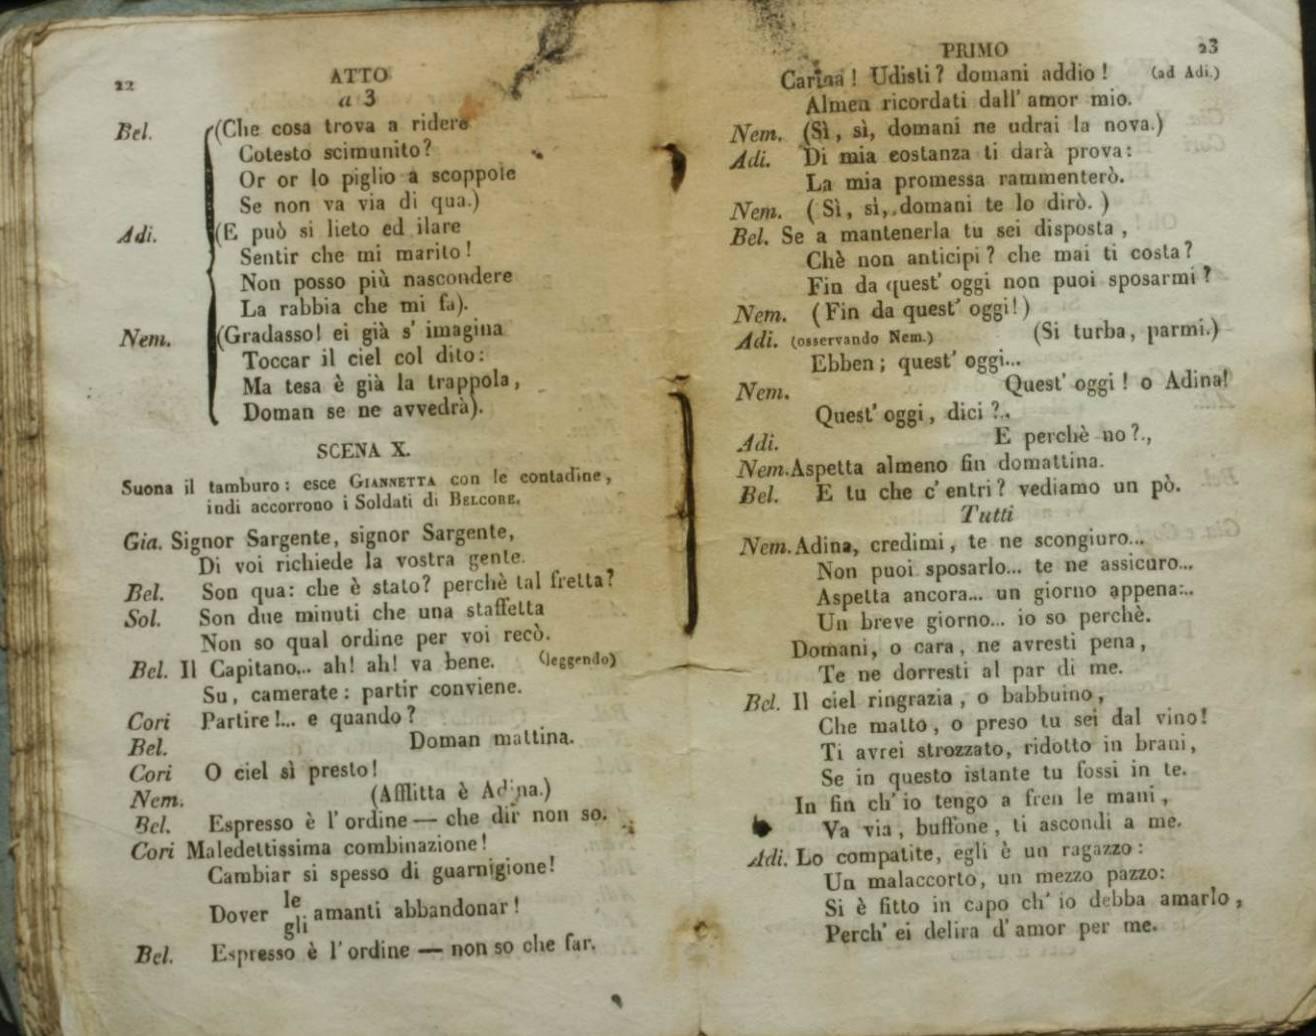 22
ATTO
a 3
Bel. (Che cosa trova a ridere
Cotesto scimunito?
Or or lo piglio a scoppole
Se non va via di qua.)
Adi. (E può si lieto ed ilare
Sentir che mi marito!
Non posso più nascondere
La rabbia che mi fa).
Nem. (Gradasso! ei già s' imagina
Toccar il ciel col dito:
Ma tesa è già la trappola,
Doman se ne avvedrà).
SCENA X.
Suona il tamburo: esce GIANNETTA con le contadine,
indi accorrono i Soldati di BELCORE.
Gia. Signor Sargente, signor Sargente,
Di voi richiede la vostra gente.
Bel. Son qua: che è stato? perchè tal fretta?
Sol. Son due minuti che una staffetta
Non so qual ordine per voi recò.
Bel. Il Capitano... ah! ah! va bene. (leggendo)
Su, camerate: partir conviene.
Cori Partire!... e quando?
Bel. Doman mattina.
Cori O ciel sì presto!
Nem. (Afflitta è Adina.)
Bel. Espresso è l' ordine — che dir non so.
Cori Maledettissima combinazione!
Cambiar si spesso di guarnigione!
Dover le
gli amanti abbandonar!
Bel. Espresso è l' ordine — non so che far.
PRIMO
23
Carina! Udisti? domani addio! (ad Adi.)
Almen ricordati dall' amor mio.
Nem. (Sì, sì, domani ne udrai la nova.)
Adi. Di mia costanza ti darà prova:
La mia promessa rammenterò.
Nem. (Sì, sì, domani te lo dirò.)
Bel. Se a mantenerla tu sei disposta,
Chè non anticipi? che mai ti costa?
Fin da quest' oggi non puoi sposarmi?
Nem. (Fin da quest' oggi!)
Adi. (osservando Nem.) (Si turba, parmi.)
Ebben; quest' oggi...
Nem. Quest' oggi! o Adina!
Quest' oggi, dici?..
Adi. E perchè no?..
Nem. Aspetta almeno fin domattina.
Bel. E tu che c' entri? vediamo un pò.
Tutti
Nem. Adina, credimi, te ne scongiuro...
Non puoi sposarlo... te ne assicuro...
Aspetta ancora... un giorno appena...
Un breve giorno... io so perchè.
Domani, o cara, ne avresti pena,
Te ne dorresti al par di me.
Bel. Il ciel ringrazia, o babbuino,
Che matto, o preso tu sei dal vino!
Ti avrei strozzato, ridotto in brani,
Se in questo istante tu fossi in te.
In fin ch' io tengo a fren le mani,
Va via, buffone, ti ascondi a me.
Adi. Lo compatite, egli è un ragazzo:
Un malaccorto, un mezzo pazzo:
Si è fitto in capo ch' io debba amarlo,
Perch' ei delira d' amor per me.